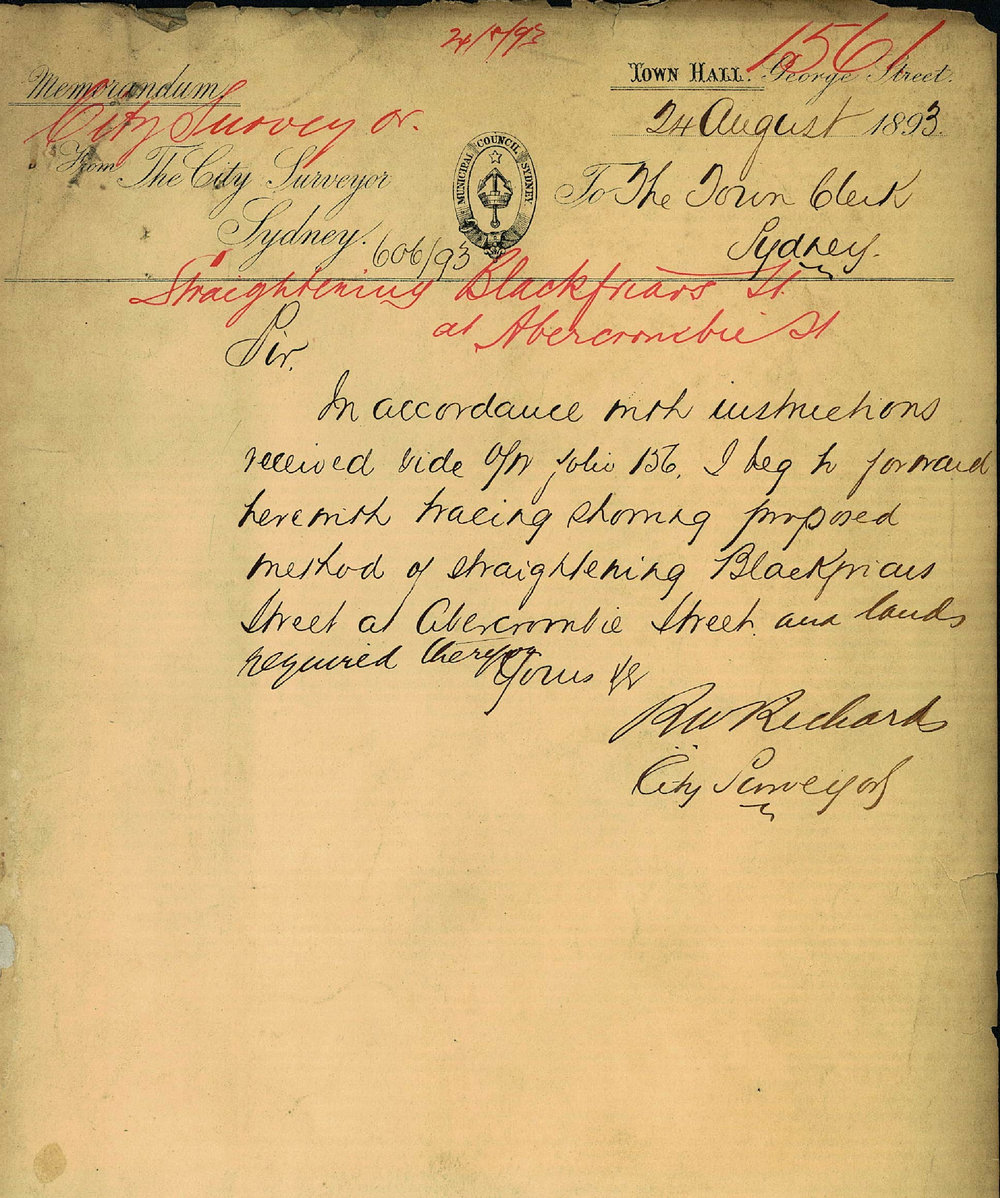 24/8/93
1561
Memorandum
TOWN HALL. George Street.
City Surveyor.
24 August 1893.
From The City Surveyor
Sydney.
MUNICIPAL COUNCIL SYDNEY
To The Town Clerk
Sydney.
606/93
Straightening Blackfriars St.
at Abercrombie St
Sir,
In accordance with instructions
received vide folio 156, I beg to forward
herewith tracing showing proposed
method of straightening Blackfriars
Street at Abercrombie Street and lands
required therefor
Yours &c
RW Richards
City Surveyor